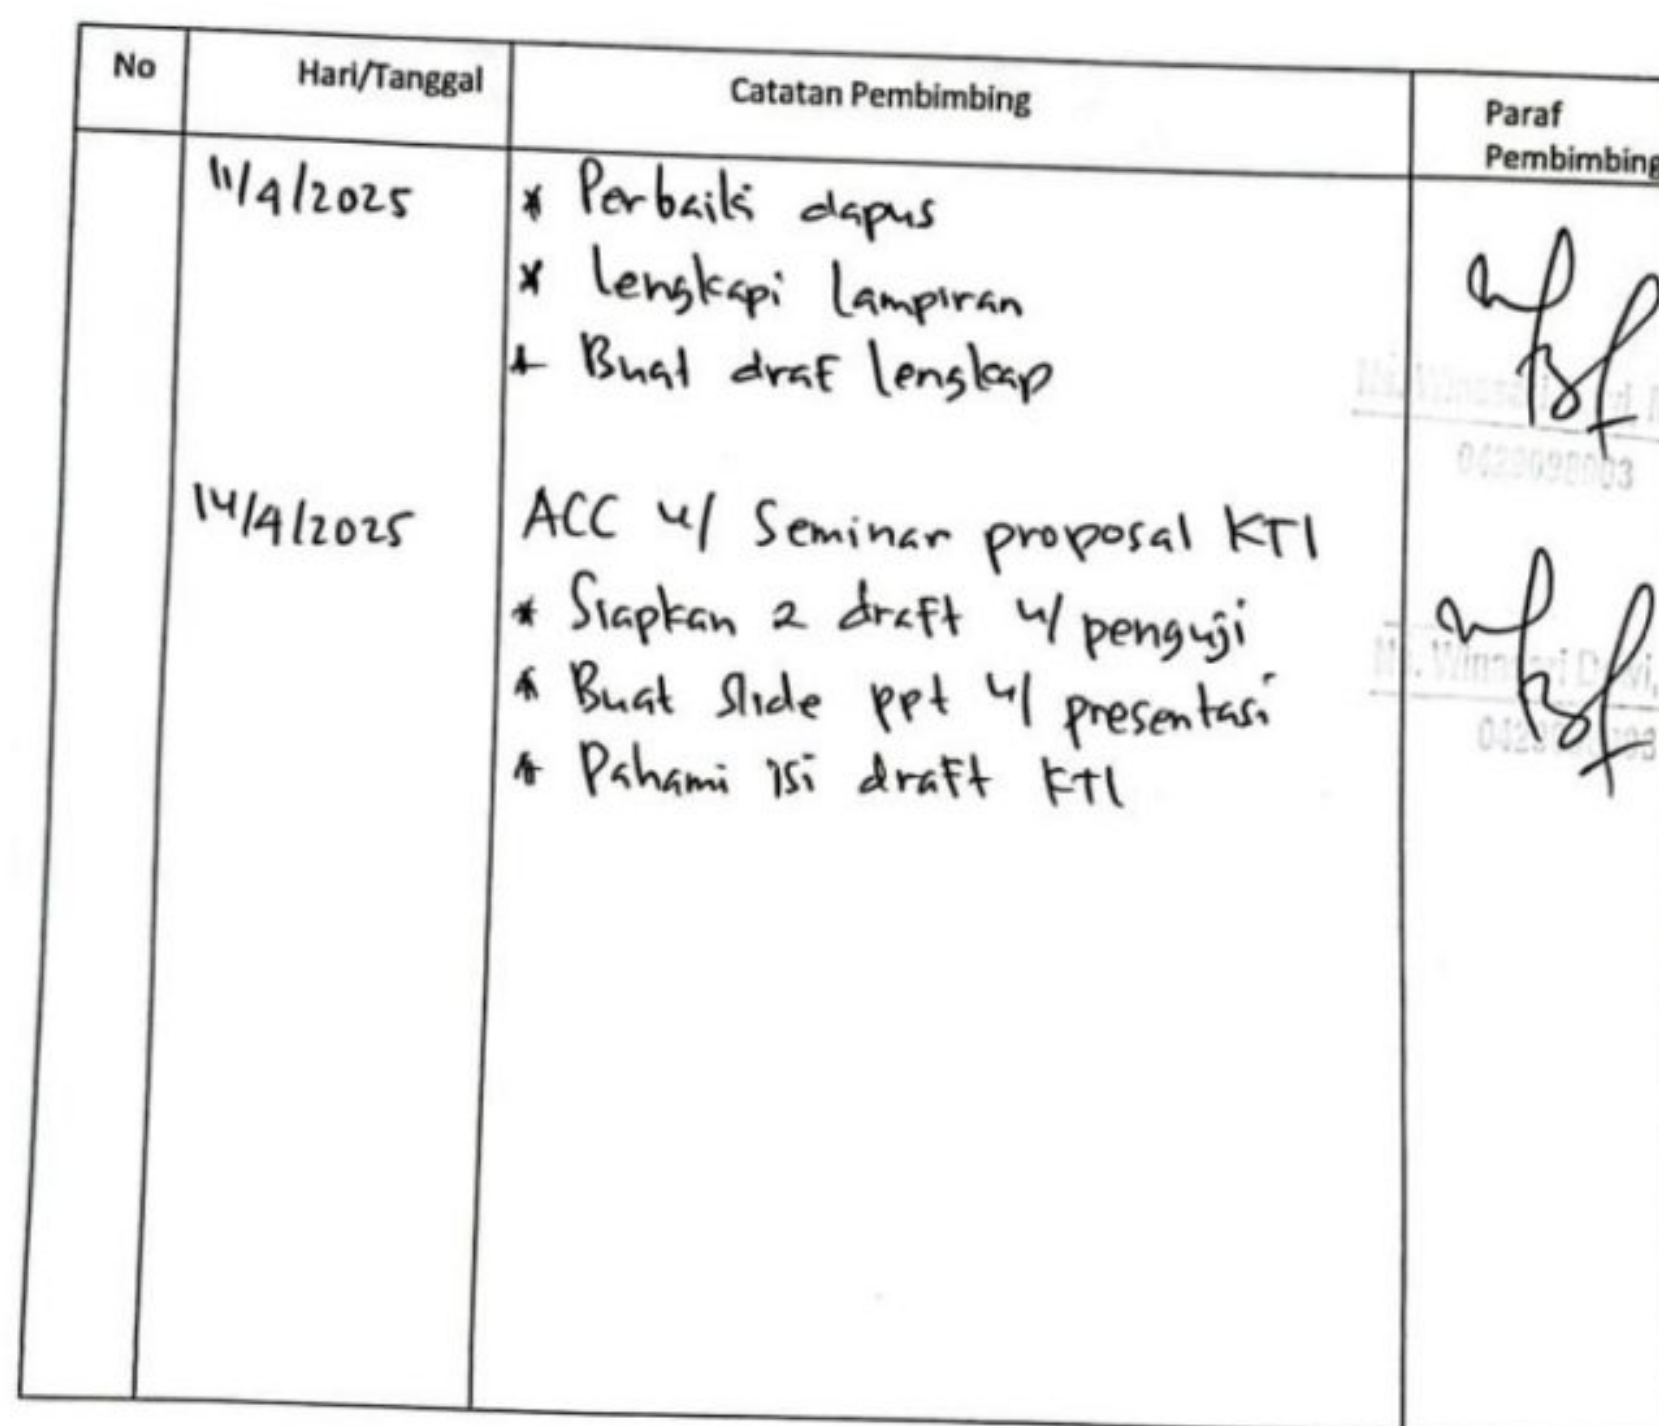 No Hari/Tanggal Catatan Pembimbing Paraf
Pembimbing
11/4/2025 * Perbaiki dapus
* Lengkapi Lampiran
* Buat draf lengkap
14/4/2025 ACC u/ Seminar proposal KTI
* Siapkan 2 draft u/ penguji
* Buat slide ppt u/ presentasi
* Pahami isi draft KTI